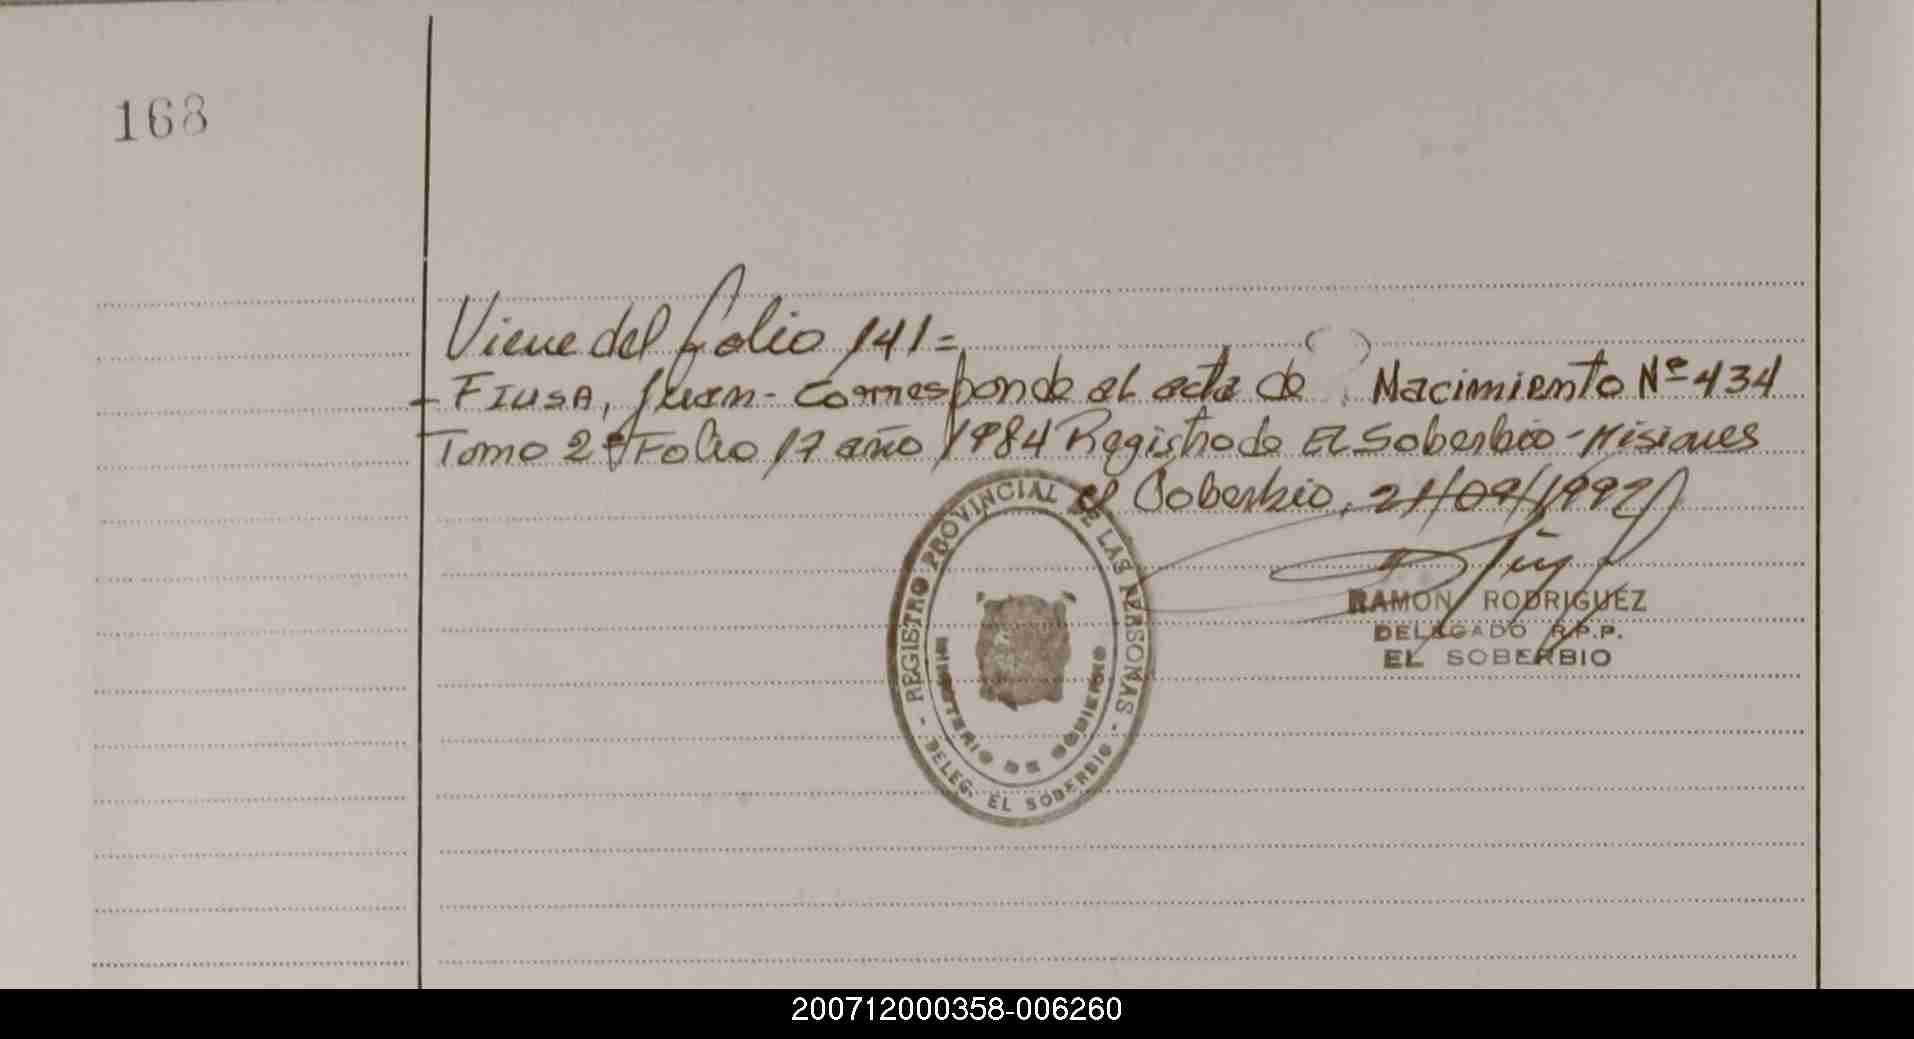 168
Viene del folio 141=
- FIUSA, Juan - Corresponde al acta de Nacimiento Nº 434
Tomo 2º Folio 17 año 1984 Registro de El Soberbio - Misiones
el Soberbio, 21/09/1992
REGISTRO PROVINCIAL DE LAS PERSONAS
MINISTERIO DE GOBIERNO
- DELEG. EL SOBERBIO -
RAMON RODRIGUEZ
DELEGADO R.P.P.
EL SOBERBIO
200712000358-006260